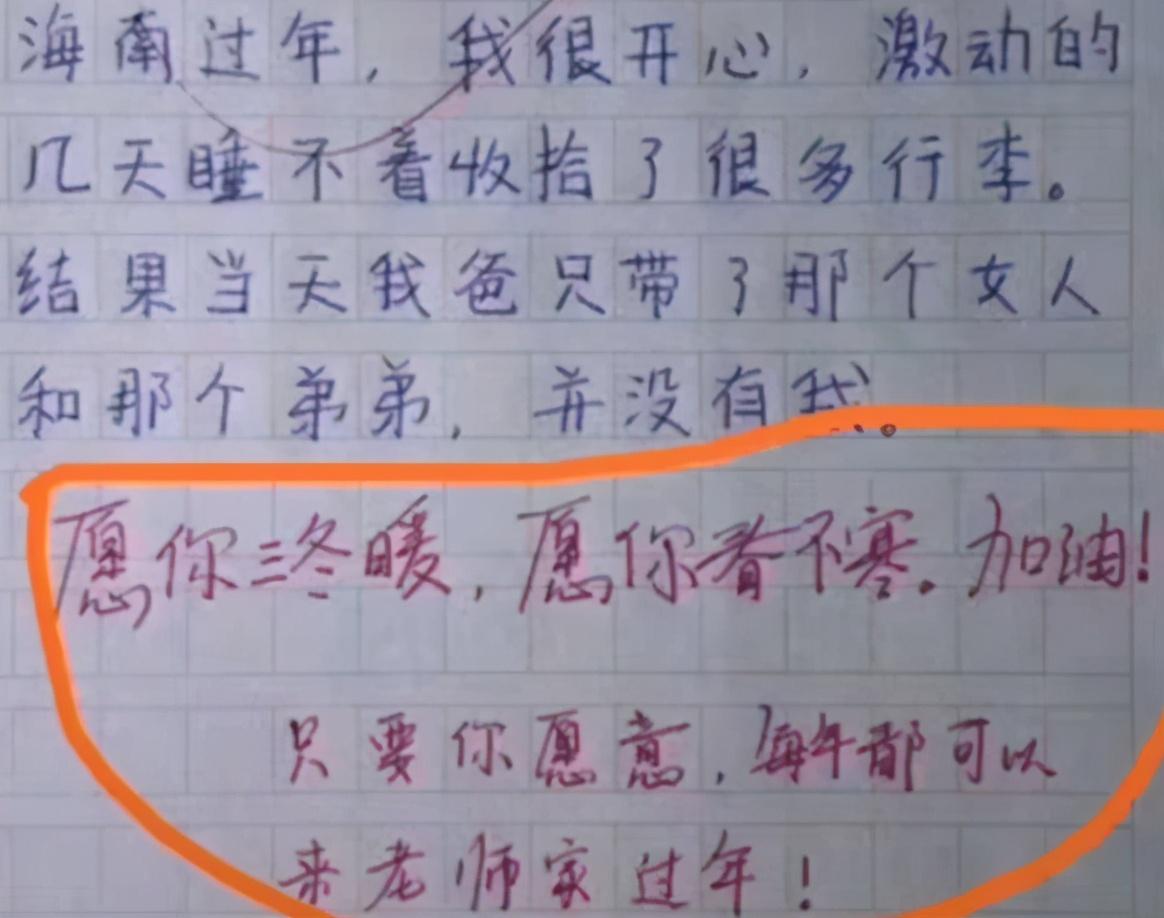 海南过年，我很开心，激动的
几天睡不着收拾了很多行李。
结果当天我爸只带了那个女人
和那个弟弟，并没有我。
愿你三冬暖，愿你春不寒。加油！
只要你愿意，每年都可以
来老师家过年！